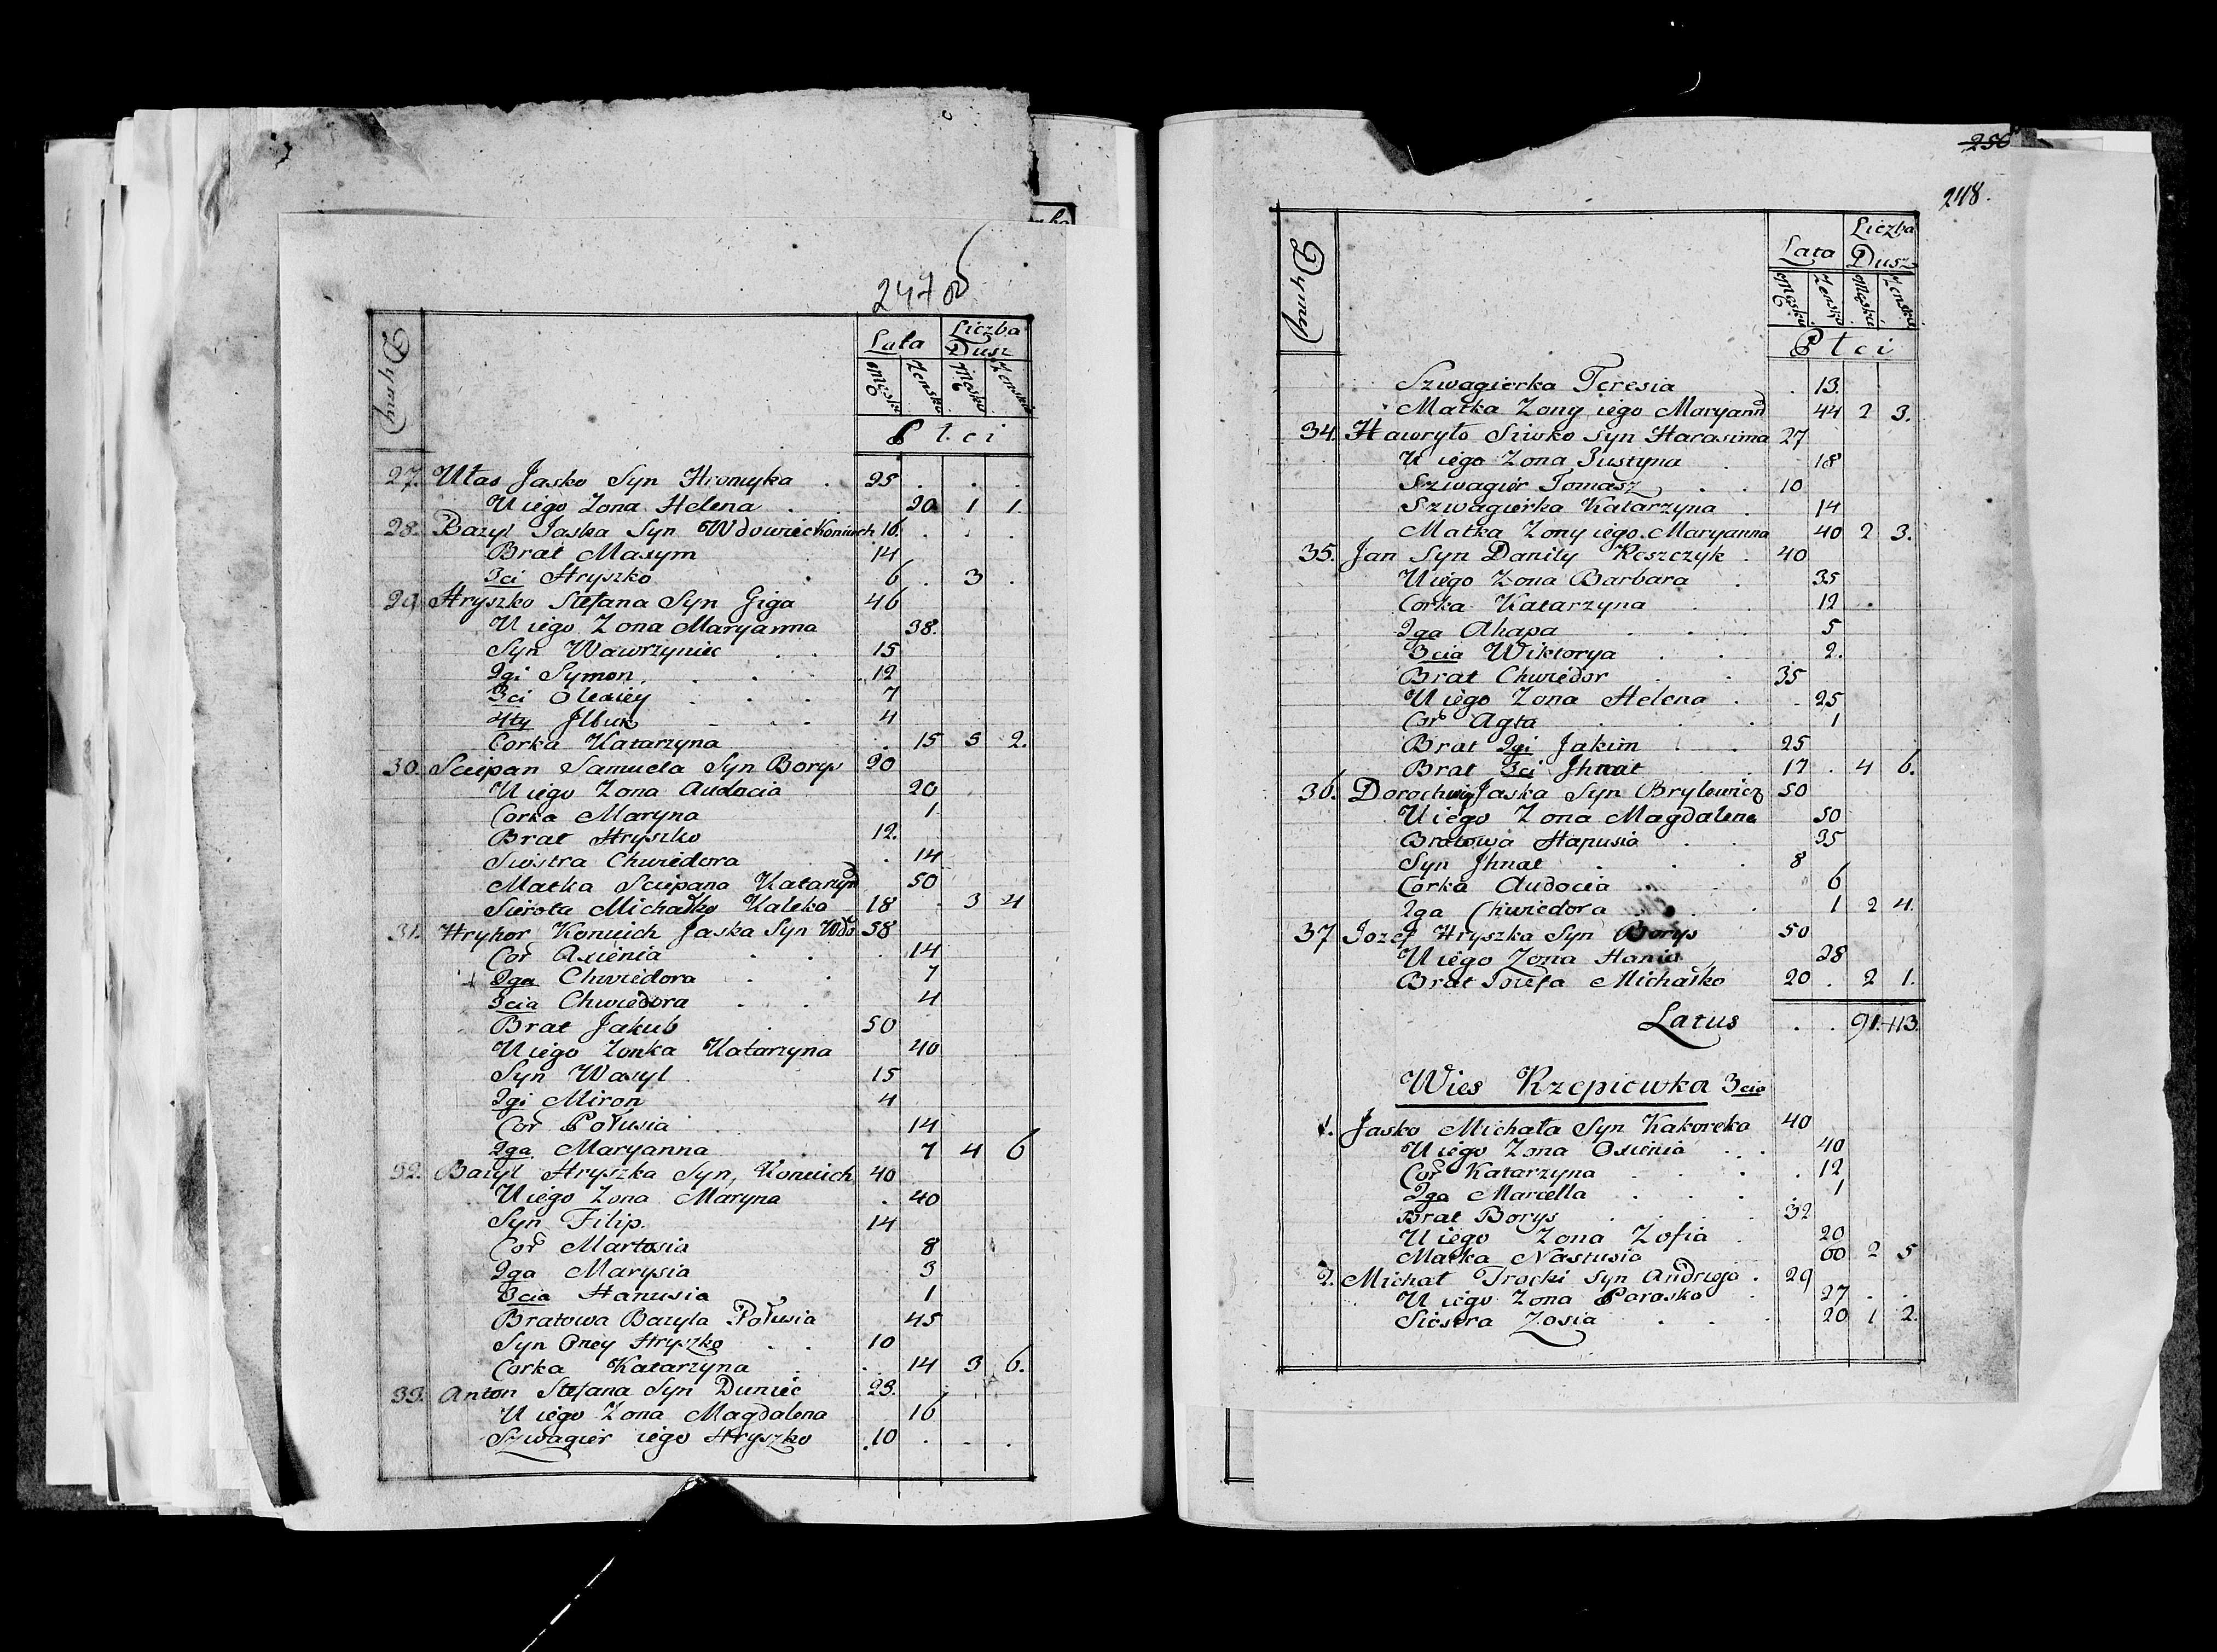 247 об
Dymy
Lata
Liczba Dusz
Męska
Żenska
Męska
Żenska
Płci
27. Ułas Jaśko Syn Hromyka . 25 . . .
U iego Zona Helena . . 20 1 1
28. Bazyl Jaska Syn Wdowiec Koniuch 16. . . .
Brat Maxym 14
3ci Hryszko 6 . 3 .
29. Hryszko Stefana Syn Giga 46
U iego Zona Maryanna 38.
Syn Wawrzyniec . . 15
2gi Symon . . . 12
3ci Olexiey . . . 7
4ty . . . 4
Corka Katarzyna . 15 5 2.
30. Sciepan Samuela Syn Borys 20
U iego Zona Audocia 20
Corka Maryna 1
Brat Hryszko 12.
Siostra Chwiedora . 14
Matka Sciepana Kataryna 50
Sierota Michałko Kaleka 18 . 3 4
31. Hryhor Koniuch Jaska Syn Wdo. 58
Cor Axienia . . . 14
2ga Chwiedora . 7
3cia Chwiedora . . 4
Brat Jakub . 50
U iego Zonka Katarzyna 40
Syn Wasyl . 15
2gi Miron 4
Cor Połusia . 14
2ga Maryanna . 7 4 6
32. Bazyl Hryszka Syn, Koniuch 40
U iego Zona Maryna . 40
Syn Filip. 14
Cor Martosia 8
2ga Marysia 3
3cia Hanusia . 1
Bratowa Bazyla Połusia 45
Syn Oney Hryszko . . 10
Corka Katarzyna . . 14 3 6.
33. Anton Stefana Syn Duniec 23.
U iego Zona Magdalena 16
Szwagier iego Hryszko .10 . . .
256
248.
Dymy
Lata
Liczba Dusz
Męska
Żenska
Męska
Żenska
Płci
Szwagierka Teresia . 13.
Matka Zony iego Maryanna 44 2 3.
34. Hawryło Siwko Syn Harasima 27
U iego Zona Justyna . 18
Szwagier Tomasz . . 10
Szwagierka Katarzyna . 14
Matka Zony iego Maryanna 40 2 3.
35. Jan Syn Daniły Koszczyk . 40
U iego Zona Barbara . 35
Corka Katarzyna . . 12 .
2ga Ahapa . . . 5
3cia Wiktorya . . . 2.
Brat Chwiedor . . 35
U iego Zona Helena . . 25
Cor Agta . . . 1
Brat 2gi Jakim . . 25
Brat 3ci Jhnat . . 17 . 4 6.
36. Jaska Syn Brylewicz 50
U iego Zona Magdalena 50
Bratowa Hapusia . . 35
Syn Jhnat . . . 8
Corka Audocia . 6
2ga Chwiedora . . 1 2 4.
37 Jozef Hryszka Syn Borys 50
U iego Zona Hania 28
Brat Jozefa Michałko 20 . 2 1.
Latus . . 91. 113.
Wies Krzepiewka 3cia
1. Jasko Michała Syn Kakoreka 40
U iego Zona Oxienia . . . 40
Cor Katarzyna . . . . 12
2ga Marcella . . . 1
Brat Borys . . . . 32
U iego Zona Zofia . 20
Matka Nastusia . 60 2 5
2. Michał Trocki Syn Andrieja . 29
U iego Zona Paraska . 27 . .
Siostra Zosia . . . 20 1 2.